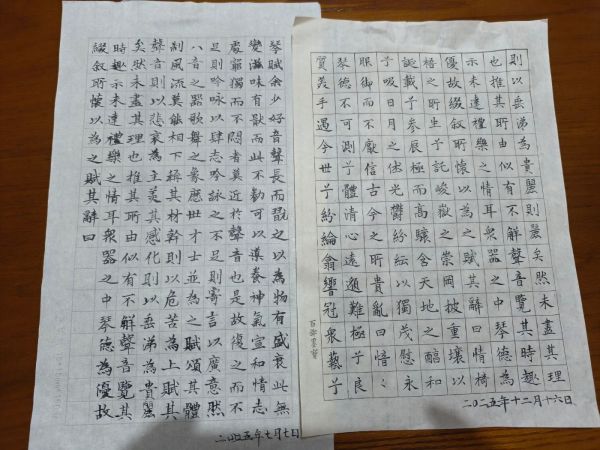 琴賦余少好音聲長而翫之以為物有盛衰此無
變滋味有猒而此不勌可以導養神氣宣和情志
處窮獨而不悶者莫近於聲音也是故復之而不
足則吟詠以肆志吟詠之不足則寄言以廣意然
八音之器歌舞之象歷世才士並為之賦頌其體
制風流莫能相下稱其材幹則以危苦為上賦其
聲音則以悲哀為主美其感化則以垂涕為貴麗
矣然未盡其理也推其所由似有不解聲音覽其
時趣示未達禮樂之情耳衆器之中琴德為優故
綴敘所懷以為之賦其辭曰
二〇二五年七月七日
則以垂涕為貴麗則麗矣然未盡其理
也推其所由似有不解聲音覽其時趣
示未達禮樂之情耳衆器之中琴德為
優故綴敘所懷以為之賦其辭曰惟椅
梧之所生兮託峻嶽之崇岡披重壤以
誕載兮參辰極而高驤含天地之醇和
兮吸日月之休光鬱紛紜以獨茂慰永
服御而不厭信古今之所貴亂曰愔〻
琴德不可測兮體清心遠邈難極兮良
質美手遇今世兮紛綸翕響冠衆藝兮
二〇二五年十二月十六日